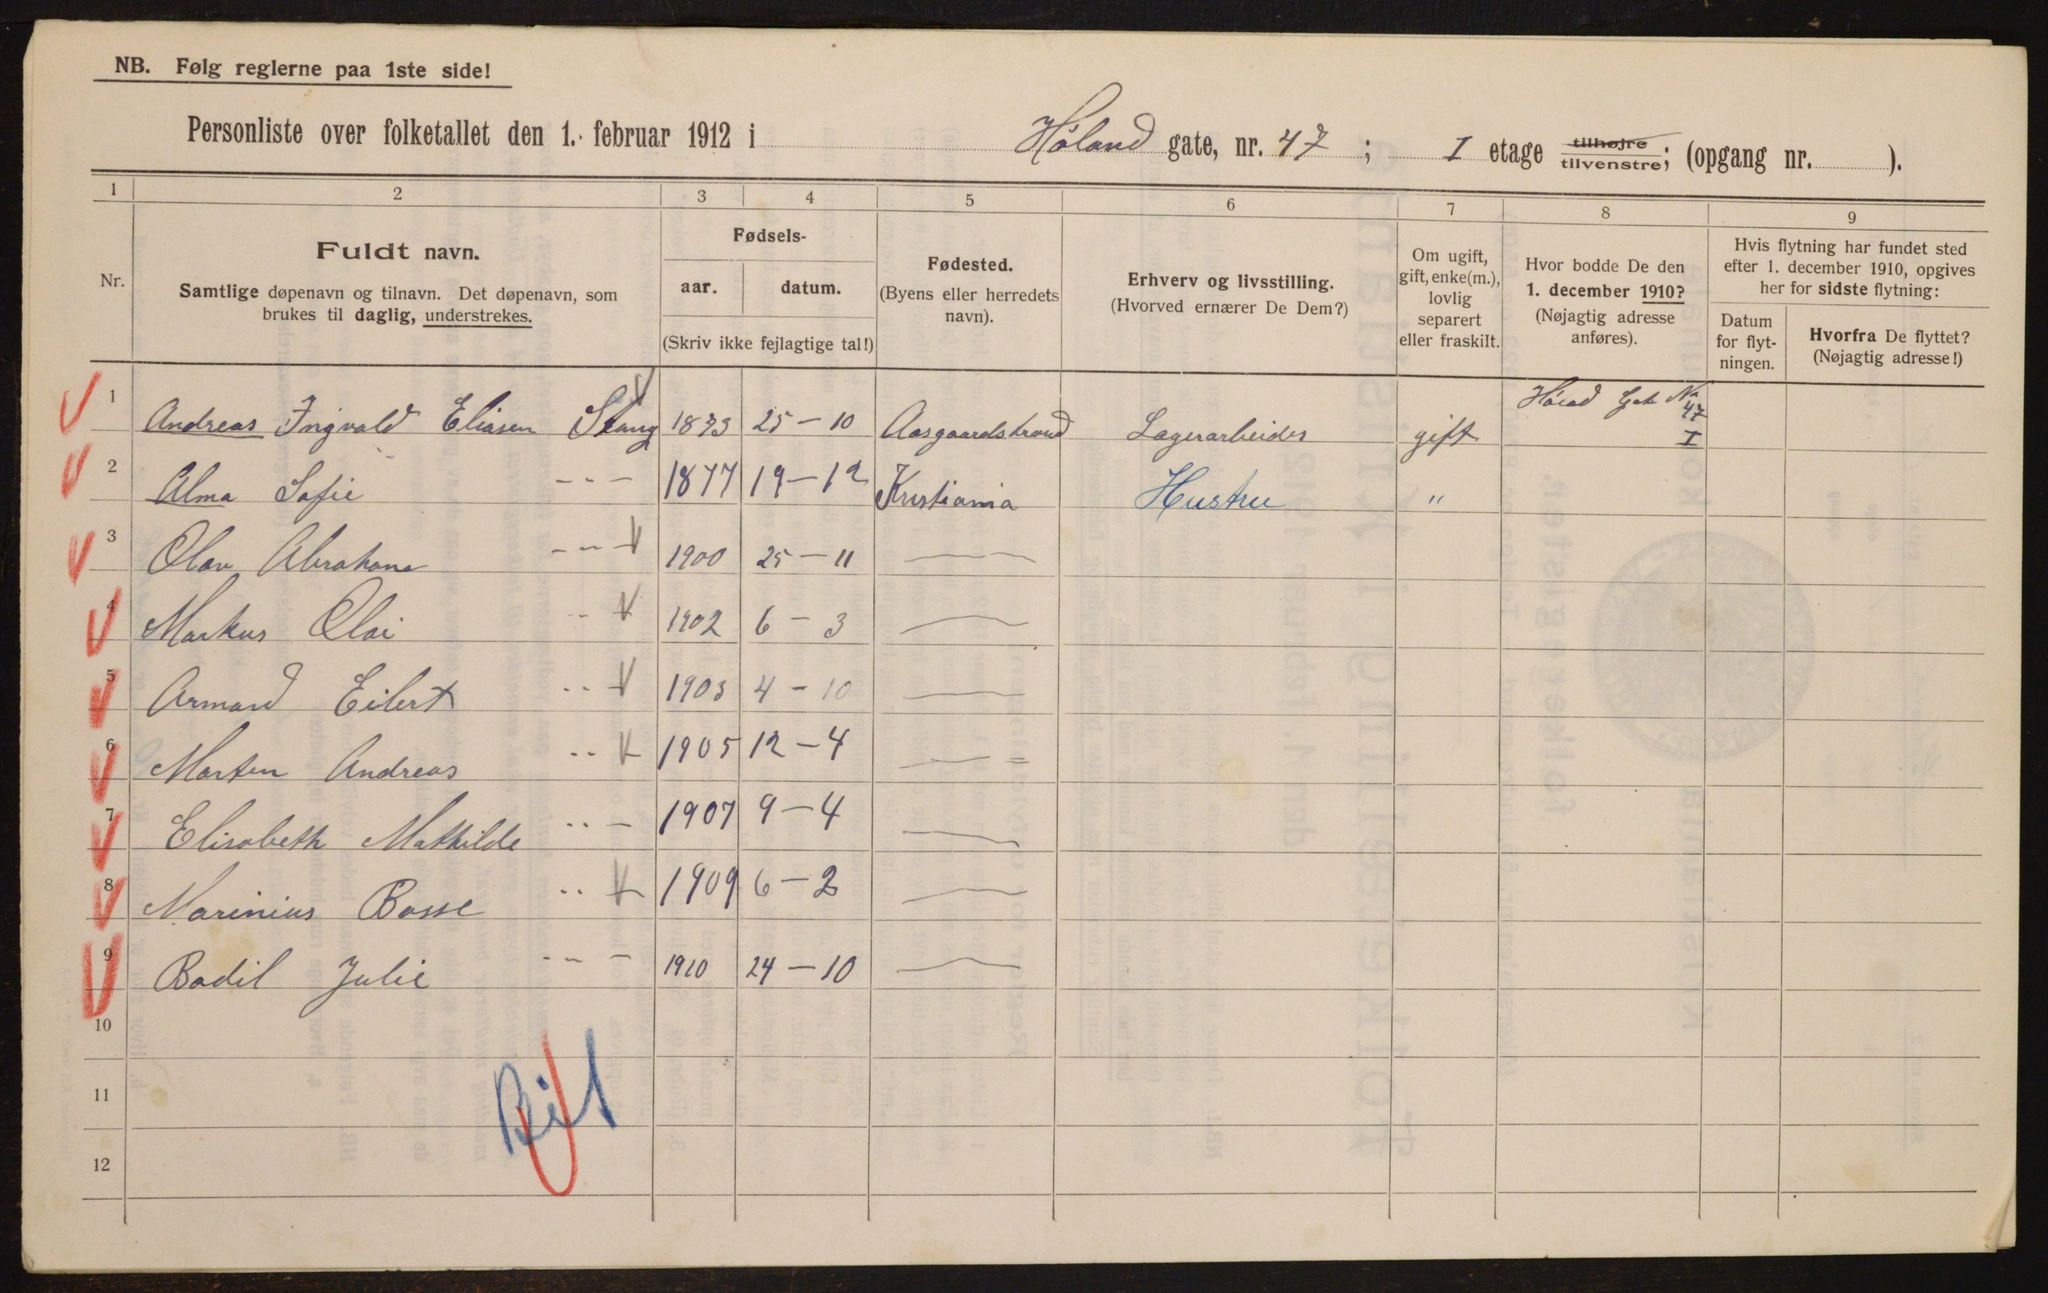 NB. Følg reglerne paa 1ste side!
Personliste over folketallet den 1. februar 1912 i Høland gate, nr. 47; I etage tilhøjre tilvenstre; (opgang nr. ).
1 2 3 4 5 6 7 8 9
Nr.
Fuldt navn.
Samtlige døpenavn og tilnavn. Det døpenavn, som
brukes til daglig, understrekes.
Fødsels-
aar. datum.
(Skriv ikke fejlagtige tal!)
Fødested.
(Byens eller herredets
navn).
Erhverv og livsstilling.
(Hvorved ernærer De Dem?)
Om ugift,
gift, enke(m.),
lovlig
separert
eller fraskilt.
Hvor bodde De den
1. december 1910?
(Nøjagtig adresse
anføres).
Hvis flytning har fundet sted
efter 1. december 1910, opgives
her for sidste flytning:
Datum
for flyt-
ningen.
Hvorfra De flyttet?
(Nøjagtig adresse!)
1 Andreas Ingvald Eliasen Stang 1873 25-10 Aasgaardstrand Lagerarbeider gift No 47 I
2 Alma Sofie - " - 1877 19-12 Kristiania Hustru "
3 Olav Abraham - " - 1900 25-11 —
4 Markus Olai " 1902 6-3 —
5 Armand Eilert " 1903 4-10 —
6 Marten Andreas " 1905 12-4 — =
7 Elisabeth Mathilde " - 1907 9-4 —
8 Marinius Basse " 1909 6-2 —
9 Bodil Julie - " - 1910 24-10 —
10
11
12